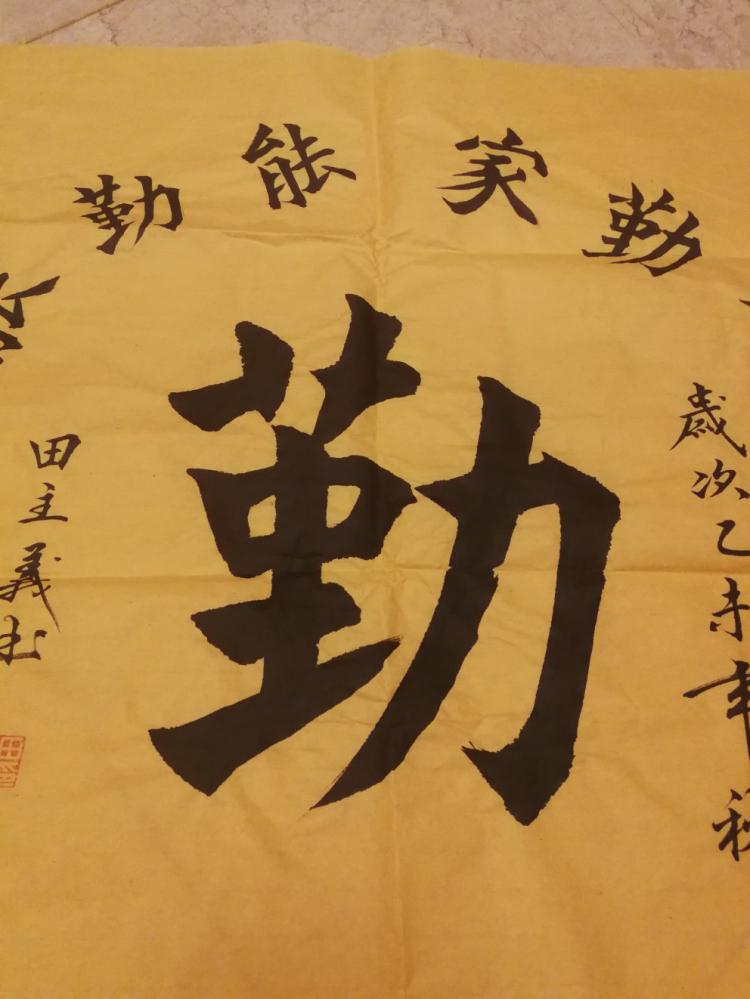 勤家能勤
歲次乙未年秋
勤
田主義书